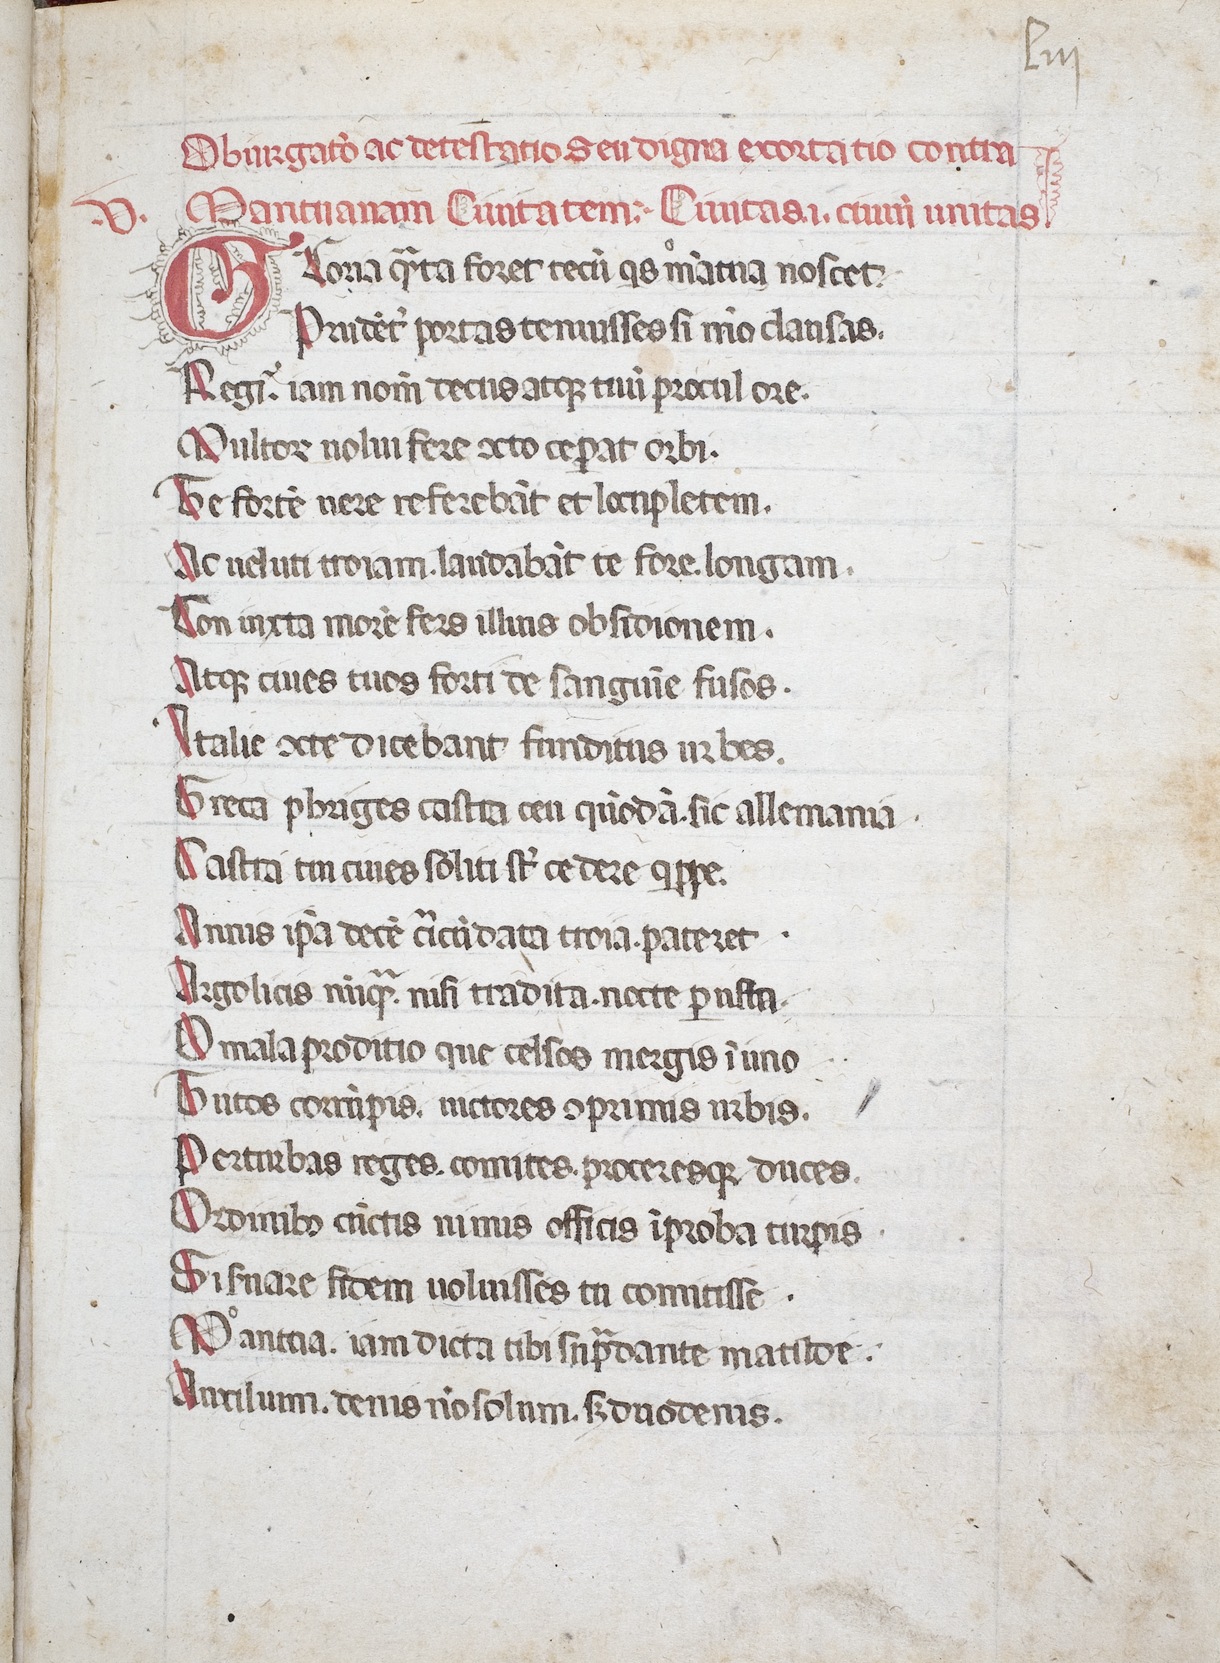 Lııı
Obiurgatō ac detestatio Seu digna exortatio contra
V. Mantuanam Ciuitatem:~ Ciuitas .i. ciuiū unitas
Gloria q̄ta foret tecū qs mātua noscet
Prudēt̄ portas tenuisses si mō clausas.
Regi. iam nom̄ decus atq; tuū procul ore.
Multor uolui fere octo ceperat orbi.
Te fortē uere referebāt et locupletem.
Ac ueluti troiam. laudabāt te fore. longam.
Non iuxta morē fers illius obsidionem.
Atq; ciues tuos forti de sanguīe fusos.
Italie octe dicebant funditus urbes.
Greca phriges castra ceu quōdā. sic allemania.
Castra tui ciues soliti st̄ cedere qppe.
Annis ip̄a decē circūdata troia. pateret.
Argolicis nūq̄. nisi tradita. nocte perusta.
O mala proditio que celsos mergis ī uno
Tutos corrūpis. uictores oprimis urbis.
Perturbas reges. comites. proceresq; duces.
Ordinib; cūctis nimis officis īproba turpis.
Si seruare fidem uoluisses tu comitisse.
Mantua. iam dicta tibi sup̄dante matilde.
Auxilium. denis nō solum. s; duodenis.